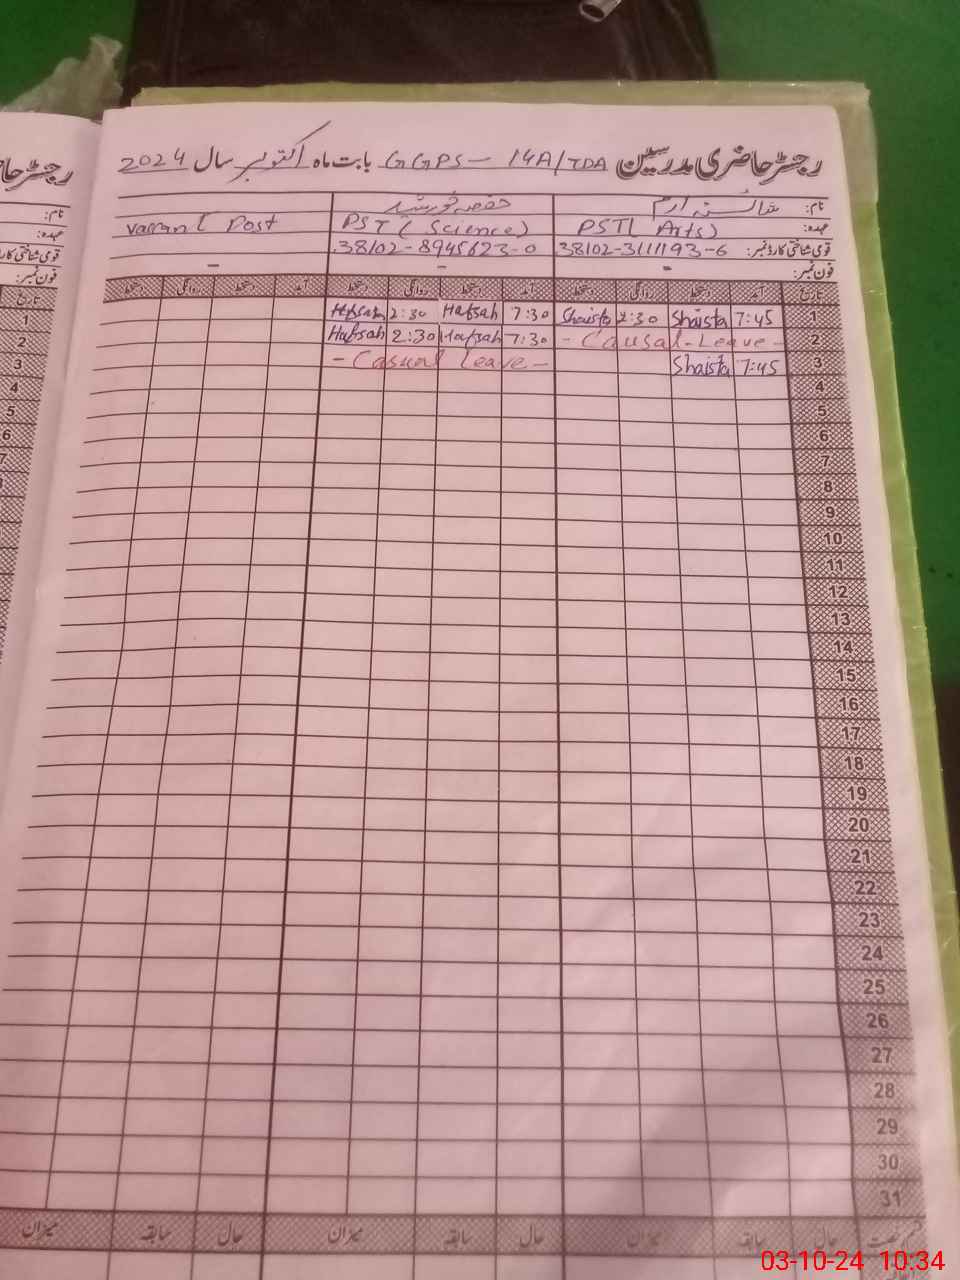 رجسٹر حاضری مدرسین GGPS - 14A/TDA بابت ماہ اکتوبر سال 2024
نام: شائستہ ارم حفصہ خورشید
عہدہ: PST( Arts) PST ( Science) Post
قومی شناختی کارڈ نمبر: 38102-3111193-6 38102-8945623-0
فون نمبر: - - -
تاریخ آمد دستخط روانگی دستخط آمد دستخط روانگی دستخط آمد دستخط روانگی دستخط
1 7:45 Shaista 2:30 Shaista 7:30 Hafsah 2:30 Hafsah
2 - Causal - Leave - 7:30 Hafsah 2:30 Hafsah
3 7:45 Shaista - Casual Leave -
4
5
6
7
8
9
10
11
12
13
14
15
16
17
18
19
20
21
22
23
24
25
26
27
28
29
30
31
حال سابقہ میزان حال سابقہ میزان حال سابقہ میزان
03-10-24 10:34